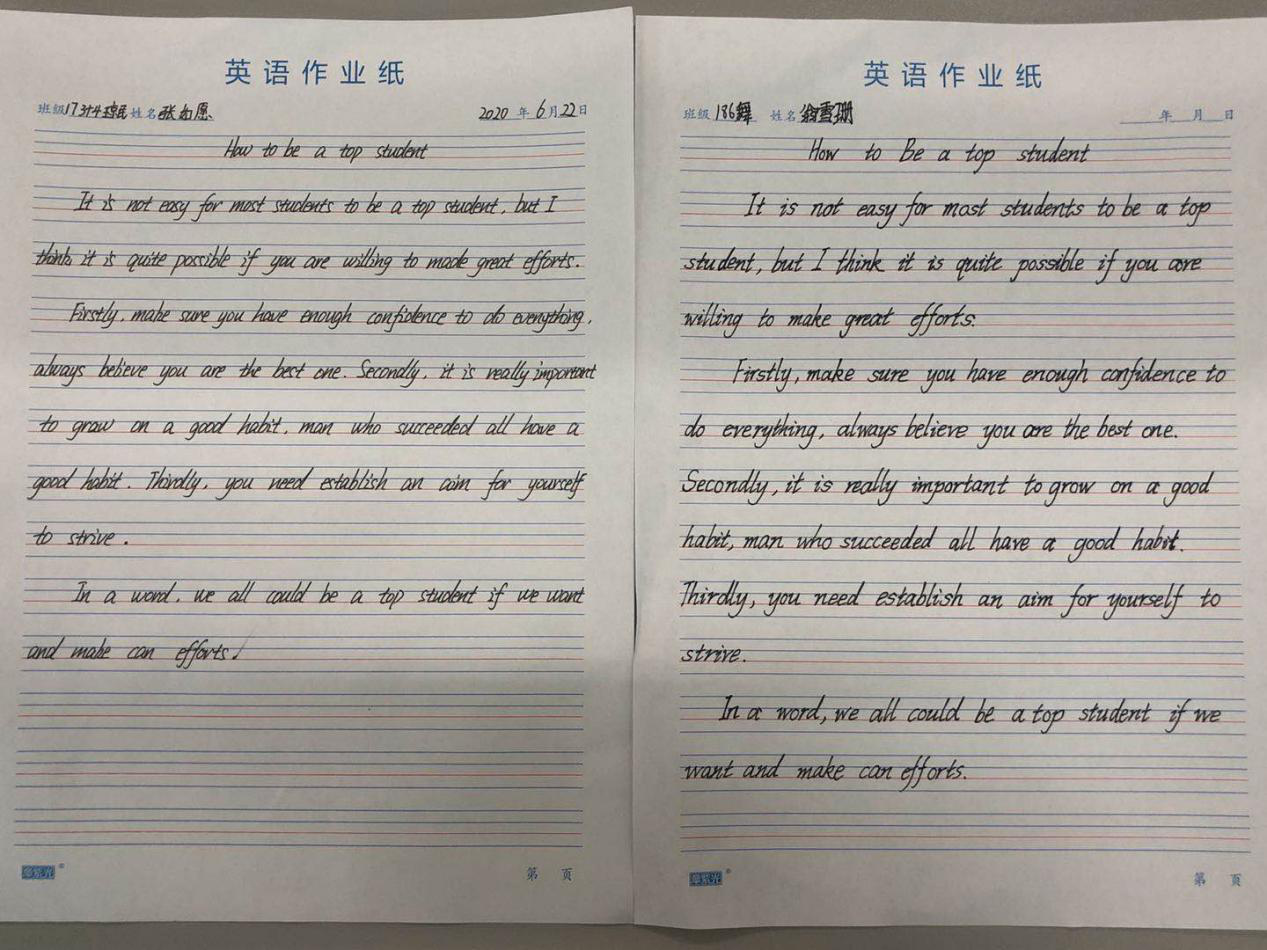 英语作业纸
班级 姓名张如愿 2020年6月22日
How to be a top student
It is not easy for most students to be a top student, but I
think it is quite possible if you are willing to made great efforts.
Firstly, make sure you have enough confidence to do everything,
always believe you are the best one. Secondly, it is really important
to grow on a good habit, man who succeeded all have a
good habit. Thirdly, you need establish an aim for yourself
to strive.
In a word, we all could be a top student if we want
and make can efforts.
章紫光®
第 页
英语作业纸
班级 186舞 姓名 翁雪珊 年 月 日
How to Be a top student
It is not easy for most students to be a top
student, but I think it is quite possible if you are
willing to make great efforts.
Firstly, make sure you have enough confidence to
do everything, always believe you are the best one.
Secondly, it is really important to grow on a good
habit, man who succeeded all have a good habit.
Thirdly, you need establish an aim for yourself to
strive.
In a word, we all could be a top student if we
want and make can efforts.
章紫光®
第 页